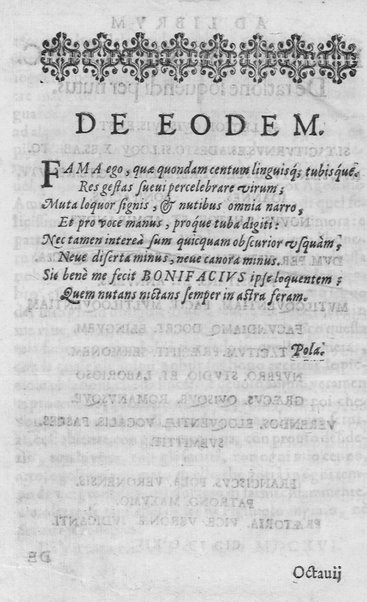 DE EODEM.
FAMA ego, quæ quondam centum linguisq; tubisque
Res gestas sueui percelebrare virum;
Muta loquor signis, & nutibus omnia narro,
Et pro voce manus, proque tuba digiti:
Nec tamen intereà sum quicquam obscurior vsquàm,
Neue diserta minus, neue canora minus.
Sic benè me fecit BONIFACIVS ipse loquentem;
Quem nutans nictans semper in astra feram.
Pola.
Octauij